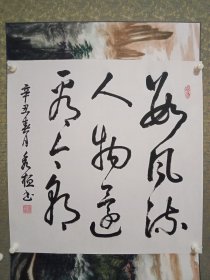 数风流
人物还
看今朝
辛丑春月 书